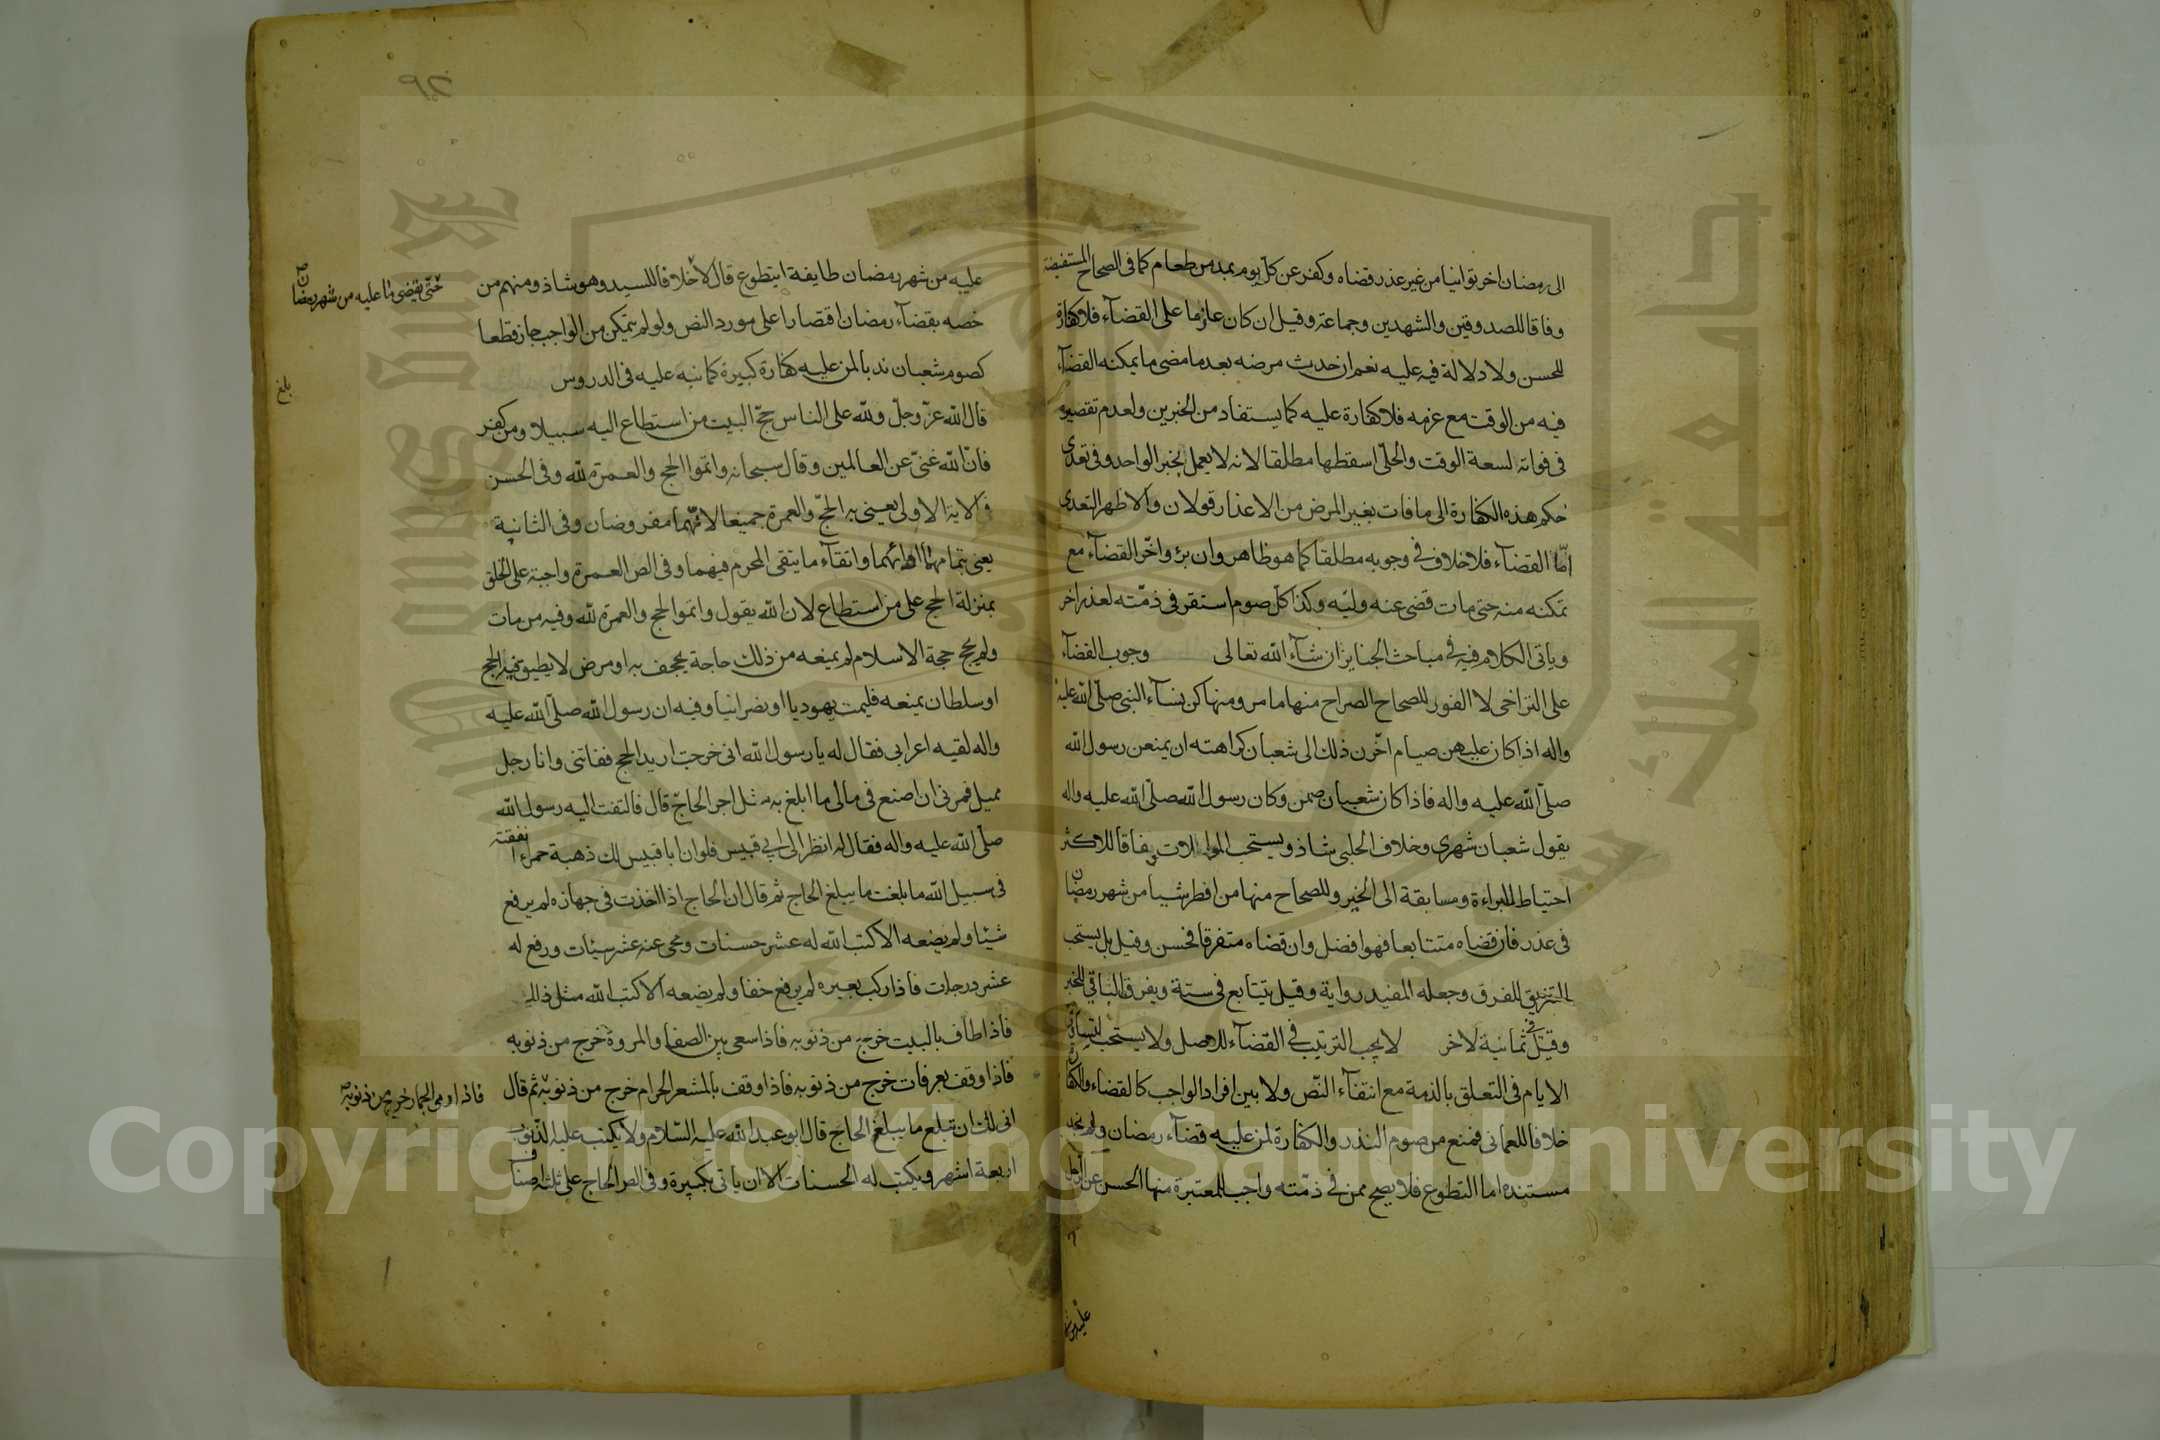 الى رمضان اخر توانيا من غير عذر قضاه وكفر عن كل يوم بمد من طعام كما في الصحاح المستفيضة
وفاقا للصدوقين والشهدين وجماعة وقيل ان كان عازما على القضآء فلا كفارة
للحسن ولا دلالة فيه عليه نعم ان حدث مرضه بعد ما مضى ما يمكنه القضآء
فيه من الوقت مع عزمه فلا كفارة عليه كما يستفاد من الخبرين ولعدم تقصيره
في فواته لسعة الوقت والحلّي اسقطها مطلقا لانه لا يعمل بخبر الواحد وفي تعدى
حكم هذه الكفارة الى ما فات بغير المرض من الاعذار قولان والاظهر التعدى
امّا القضآء فلا خلاف في وجوبه مطلقا كما هو ظاهر وان برؤ واخّر القضآء مع
تمكنه منه حتى مات قضى عنه وليّه وكذا كلّ صوم استقر في ذمّته لعذر اخر
وياتى الكلام فيه في مباحث الجنايز ان شآء الله تعالى وجوب القضآء
على التراخى لا الفور للصحاح الصراح منها ما مر ومنها كن نسآء النبى صلّى الله عليه
واله اذا كان عليهن صيام اخّرن ذلك الى شعبان كراهته ان يمنعن رسول الله
صلّى الله عليه واله فاذا كان شعبان صمن وكان رسول الله صلّى الله عليه واله
يقول شعبان شهرى وخلاف الحلبى شاذ ويستحب الموالات وفاقا للاكثر
احتياطا للبراءة ومسابقة الى الخير وللصحاح منها من افطر شيا من شهر رمضان
في عذر فان قضاه متتابعا فهو افضل وان قضاه متفرقا فحسن وقيل بل يستحب
التفريق للفرق وجعله المفيد رواية وقيل يتابع في ستة ويفرق الباقي للخبر
وقيل في ثمانية لاخر لا يجب الترتيب في القضآء للاصل ولا يستحب لتساوى
الايام في التعلق بالذمة مع انتفآء النّص ولا بين افراد الواجب كالقضاء والكفارة
خلافا للعمانى فمنع من صوم النذر والكفارة لمن عليه قضآء رمضان ولم نجد
مستنده اما التطوع فلا يصح ممن في ذمّته واجب للمعتبرة منها الحسن عن الرجل
عليه من شهر
عليه من شهر رمضان طايفة ايتطوع قال لا خلافا للسيد وهو شاذ ومنهم من
حتّى يقضى ما عليه من شهر رمضان صح
خصه بقضآء رمضان اقتصارا على مورد النص ولو لم يتمكن من الواجب جاز قطعا
كصوم شعبان ندبا لمن عليه كفارة كبيرة كما نبه عليه في الدروس
بلغ
قال الله عزّ وجلّ ولله على الناس حجّ البيت من استطاع اليه سبيلا ومن كفر
فانّ الله غنىّ عن العالمين وقال سبحانه واتموا الحج والعمرة لله وفي الحسن
في الاية الاولى يعنى به الحجّ والعمرة جميعا لانّهما مفروضان وفي الثانية
يعنى بتمامهما ادائهما واتقآء ما يتقى المحرم فيهما وفي الص العمرة واجبة على الخلق
بمنزلة الحج على من استطاع لان الله يقول واتموا الحج والعمرة لله وفيه من مات
ولم يحج حجة الاسلام لم يمنعه من ذلك حاجة يجحف به او مرض لا يطيق فيه الحج
او سلطان يمنعه فليمت يهوديا او نصرانيا وفيه ان رسول الله صلّى الله عليه
واله لقيه اعرابى فقال له يا رسول الله انى خرجت اريد الحج ففاتنى وانا رجل
مميل فمرنى ان اصنع في مالى ما ابلغ به مثل اجر الحاجّ قال فالتفت اليه رسول الله
صلّى الله عليه واله فقال له انظر الى ابي قبيس فلو ان ابا قبيس لك ذهبة حمراء انفقته
في سبيل الله ما بلغت ما يبلغ الحاج ثم قال ان الحاج اذا اخذت في جهازه لم يرفع
شيئا ولم يضعه الا كتب الله له عشر حسنات ومحى عنه عشر سيّئات ورفع له
عشر درجات فاذا ركب بعيره لم يرفع خفا ولم يضعه الا كتب الله مثل ذلك
فاذا طاف بالبيت خرج من ذنوبه فاذا سعى بين الصفا والمروة خرج من ذنوبه
فاذا وقف بعرفات خرج من ذنوبه فاذا وقف بالمشعر الحرام خرج من ذنوبه ثم قال
فاذا رمى الجمار خرج من ذنوبه صح
انى لك ان تبلغ ما يبلغ الحاج قال ابو عبد الله عليه السّلام ولا يكتب عليه الذنوب
اربعة اشهر ويكتب له الحسنات الا ان ياتى بكبيرة وفي الص الحاج على ثلثه اصناف
Copyright © King Saud University
جامعة الملك سعود